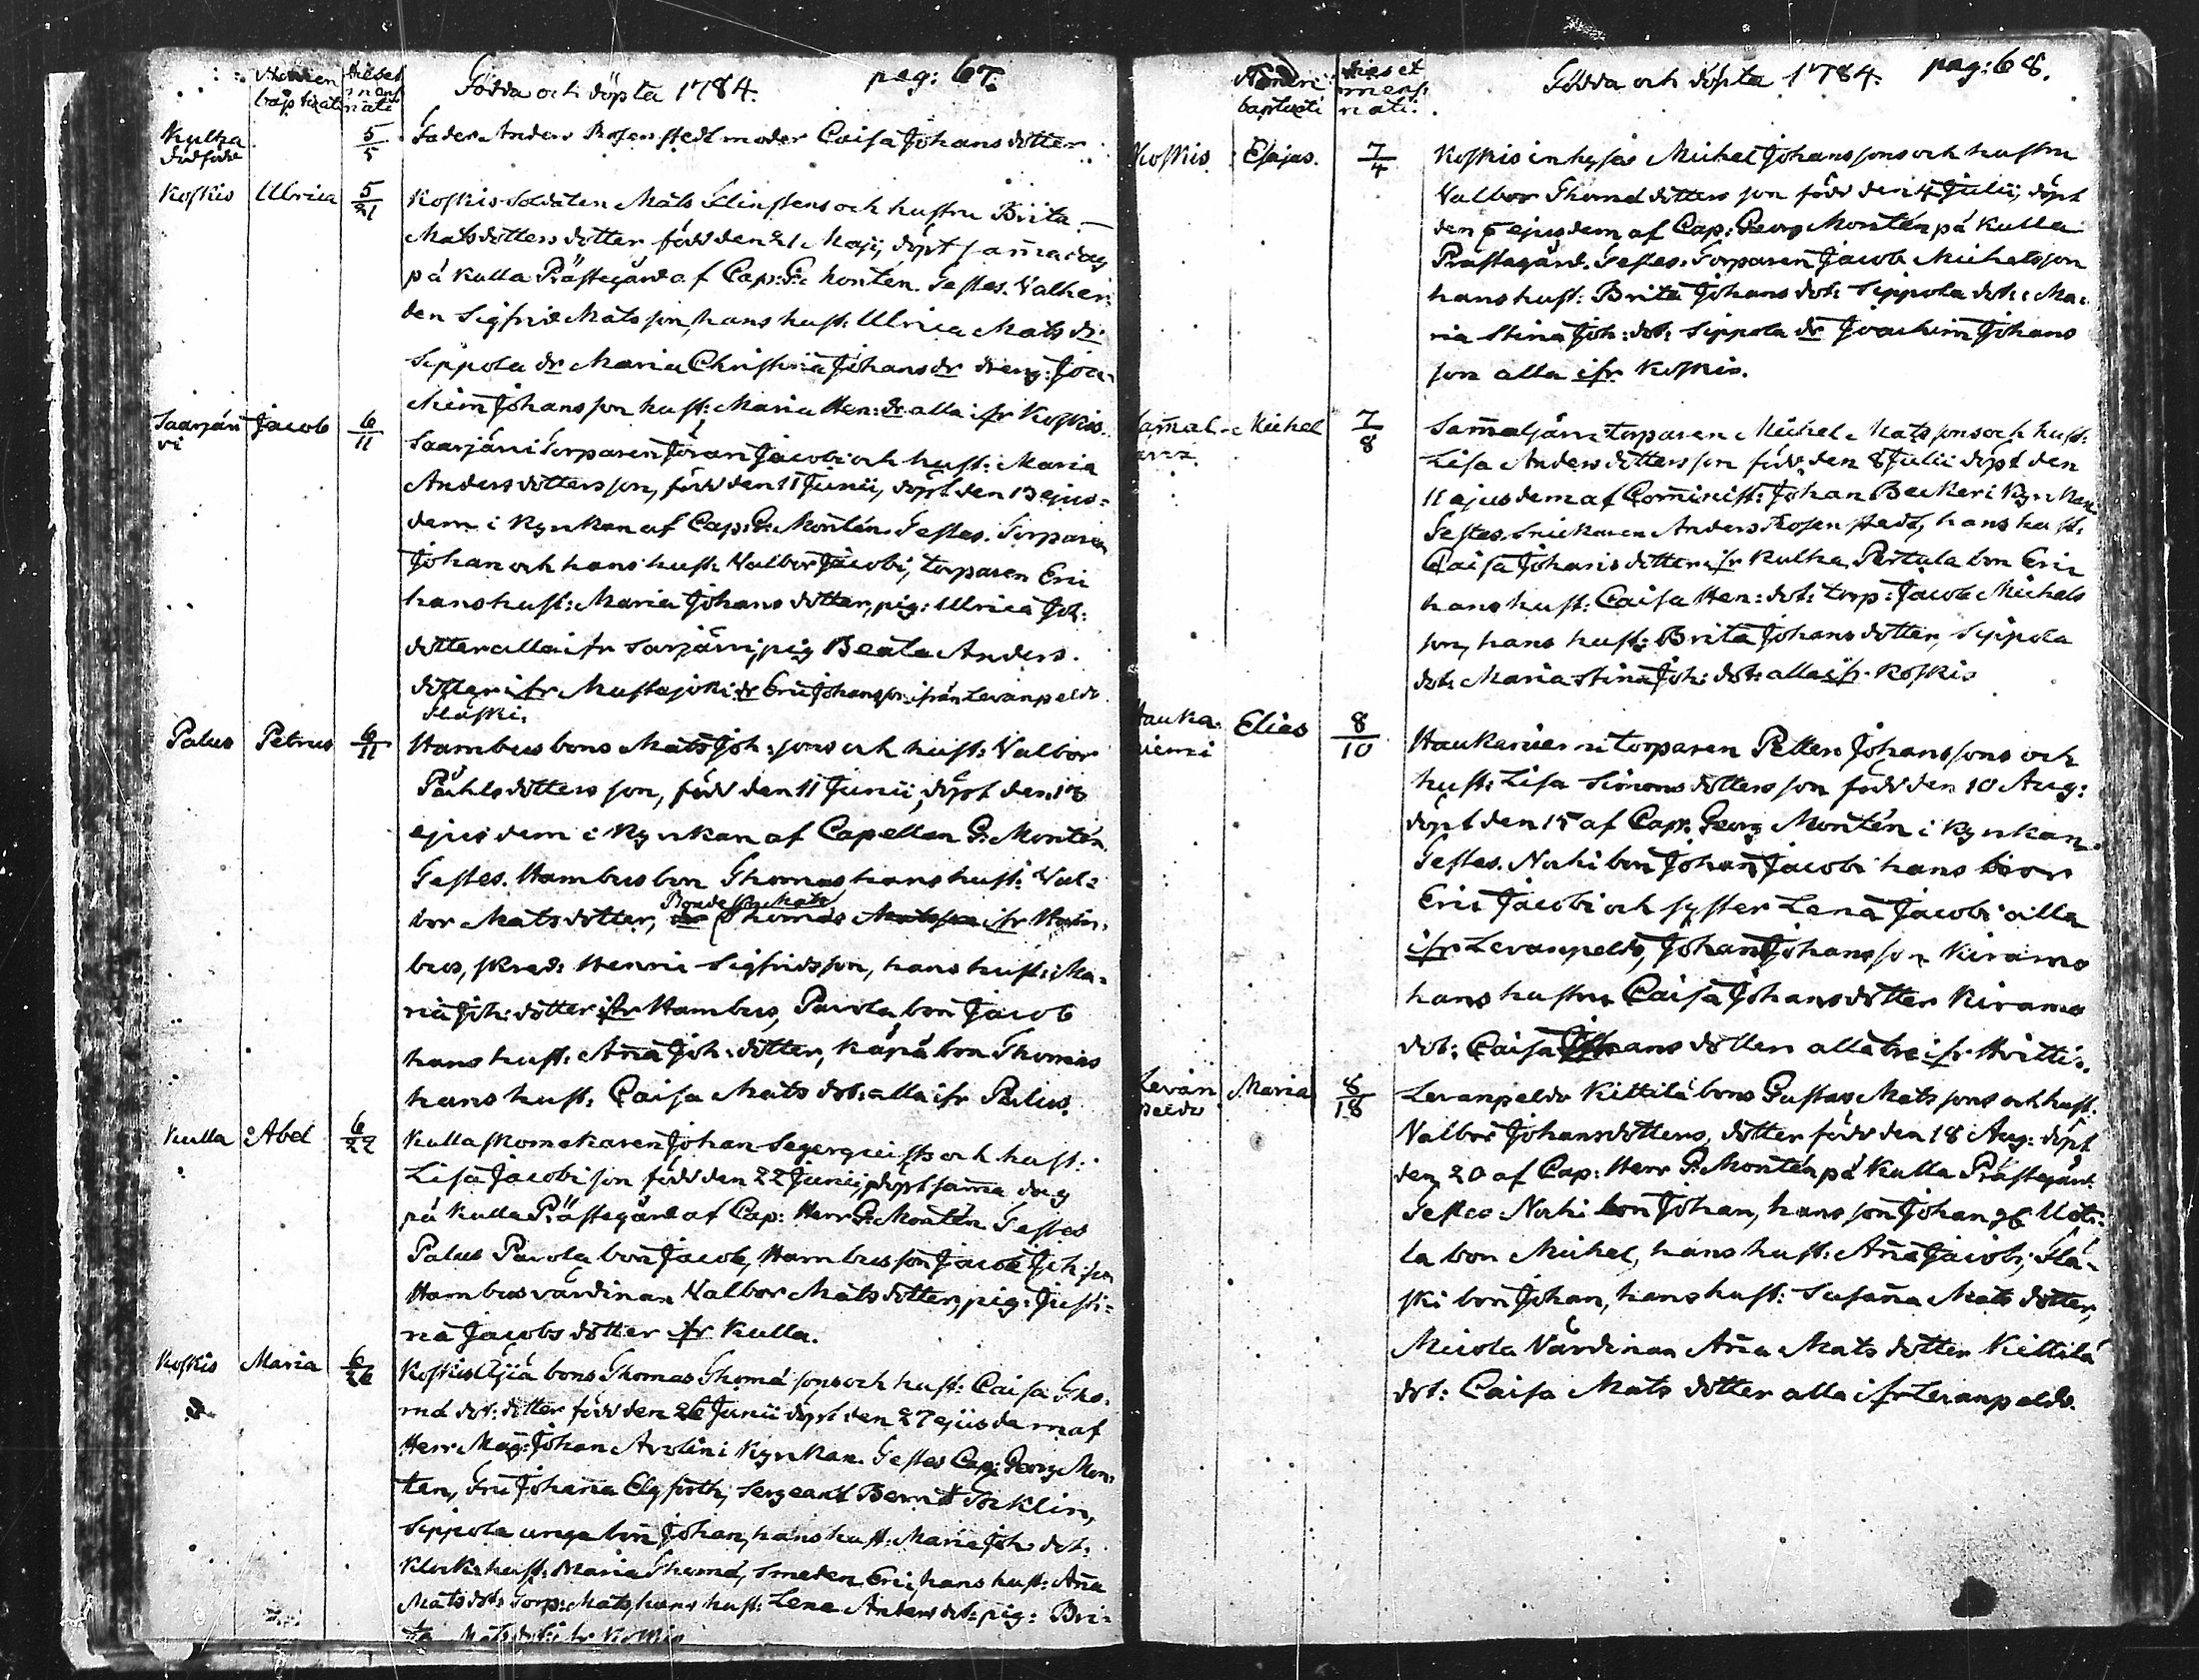 Nomen
baptizati
dies et
mens
nati
Födda och döpta 1784.
pag: 67.
Kulka
dödfödde
5/5
Fader Anders Rosenstedt moder Caisa Johans dotter
Koskis
Ulrica
5/21
Koskis Soldaten Mats Flinstens och hustru Brita
Matsdotters dotter född den 21 Maji, döpt samma dag
på Kulla Prästegård af Cap: G: Montén. Testes. Valhei-
den Sigfrid Matsson, hans hust: Ulrica Mats dr
Sippola dr Maria Christina Johans dr dreng: Joa-
kim Johansson hust: Maria Hen: dr alla ifr Koskis.
Saarjär
vi
Jacob
6/11
Saarjärvi Torparen Jöran Jacobi och hust: Maria
Andersdotters son, född den 11 Junii, döpt den 13 ejus-
dem i Kyrkan af Cap: G: Montén. Testes. Torparen
Johan och hans hust: Valbor Jacobi, torparen Eric
hans hust: Maria Johans dotter, pig: Ulrica Joh:
dotter alla ifr Sarjärvi, pig Beata Anders
dotter ifr Mustajoki dr Eric Johansson ifrån Levanpeldo
Slaski.
Palus
Petrus
6/11
Hambus bons Mats Joh: sons och hust: Valbor
Påhlsdotters son, född den 11 Junii, döpt den 13
ejusdem i Kyrkan af Capellan G: Montén.
Testes. Hambus bon Thomas hans hust: Val-
bor Matsdotter, Thomas Matsson ifr Ham-
bus, skred: Henric Sigfridsson, hans hust: Ma-
ria Joh: dotter ifr Hambus, Pavola bon Jacob
hans hust: Aña Joh: dotter, Käpä bon Thomas
hans hust: Caisa Mats dot: alla ifr Palus.
Kulla
Abel
6/22
Kulla skomakaren Johan Segerqvists och hust:
Lisa Jacobi son född den 22 Junii, döpt sama dag
på Kulla Prästegård af Cap: Herr G: Montén Testes
Palus Pavola bon Jacob, Hambus son Jacob Joh: son
Hambus värdinan Valbor Matsdotter, pig: Justi-
na Jacobs dotter ifr Kulla.
Koskis
Maria
6/26
Koskis Äijä bons Thomas Thomæ sons och hust: Caisa Tho-
mæ dot: dotter född den 26 Junii döpt den 27 ejusdem af
Herr Mag: Johan Avolin i Kyrkan. Testes Cap: Georg Mon-
ten, Fru Johana Elgfoth, Sergeant Bernt Tocklin,
Sippola unga bon Johan, hans hust: Maria Joh: dot:
Klock: hust: Maria Thomæ, Smeden Eric, hans hust: Aña
Mats dot: Torp: Mats, hans hust: Lena Anders dot: pig: Bri-
ta Mats dot: ifr Koskis
Nomen
baptizati
dies et
mens
nati:
Födda och döpta 1784.
pag: 68.
Koskis.
Esajas.
7/4
Koskis inhyses Michel Johanssons och hustru
Valbor Thomæ dotters son född den 4 Julii, döpt
den 5 ejusdem af Cap: Georg Montén på Kulla
Prästegård. Testes. Torparen Jacob Michelsson
hans hust: Brita Johans dot: Sippola dot: Ma-
ria Stina Joh: dot: Sippola dr Joachim Johans
son alla ifr Koskis.
Michel
7/8
Sam̄aljärvi torparen Michel Matssons och hust:
Lisa Anders dotters son född den 8 Julii döpt den
11 ejusdem af Com̄inist: Johan Becker i Kyrkan.
Testes Snickaren Anders Rosenstedt, hans hust:
Caisa Johans dotter ifr Kulka, Pertula bon Eric
hans hust: Caisa Hen: dot: torp: Jacob Michels
son, hans hust: Brita Johans dotter, Sippola
dot: Maria Stina Joh: dot: alla ifr Koskis
Hauka
niemi
Elias
8/10
Haukaniemi torparen Petter Johanssons och
hust: Lisa Simons dotters son född den 10 Aug:
döpt den 15 af Cap: Georg Montén i Kyrkan.
Testes. Nohi bon Johan Jacobi hans bror
Eric Jacobi och syster Lena Jacobi alla
ifr Levanpeldo, Johan Johansson Kiramo
hans hustru Caisa Johansdotter Kiramo
dot: Caisa Johans dotter alla tre ifr Hvittis.
Levan
peldo
Maria
8/18
Levanpeldo Kittilä bons Gustav Matssons och hust:
Valbor Johansdotters, dotter född den 18 Aug: döpt
den 20 af Cap: Herr G: Montén på Kulla Prästegård.
Testes Nohi bon Johan, hans son Johan Uoti-
la bon Michel, hans hust: Aña Jacobi, Slä-
ski bon Johan, hans hust: Susaña Mats dotter,
Micola Värdinan Aña Mats dotter Kittilä
dot: Caisa Mats dotter alla ifr Levanpeldo.